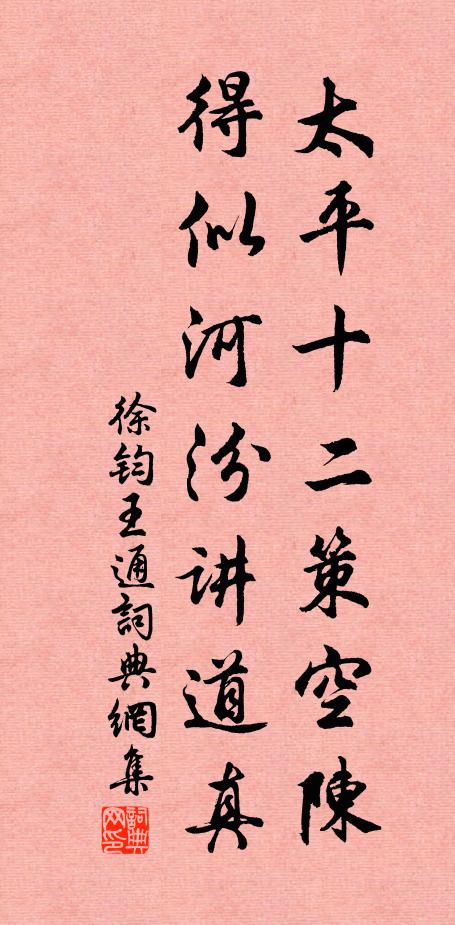 太平十二策空陳
得似河汾讲道真
徐钧王通詞典網集
詞典网印